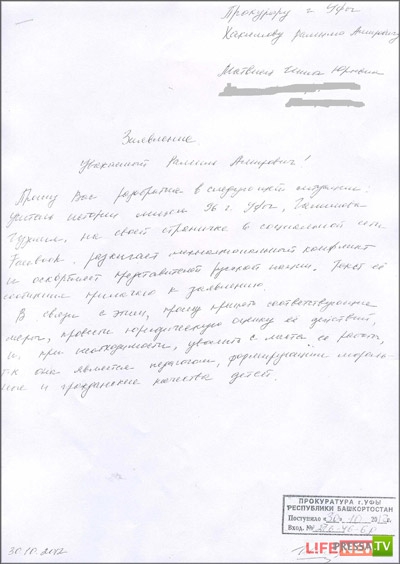 Прокурору г. Уфы
Хакимову Рамилю Амировичу
Матвеец Юрьевны
Заявление
Уважаемый Рамиль Амирович!
Прошу Вас разобраться в следующей ситуации:
учитель истории лицея 96 г. Уфы,
на своей страничке в социальной сети
Facebook разжигает межнациональный конфликт
и оскорбляет представителей русской нации. Текст её
сообщения приложено к заявлению.
В связи с этим, прошу принять соответствующие
меры, провести юридическую оценку её действий,
и, при необходимости, уволить с места её работы,
т.к она является педагогом, формирующим мораль-
ные и гражданские качества детей.
ПРОКУРАТУРА г.УФЫ
РЕСПУБЛИКИ БАШКОРТОСТАН
Поступило «30» 10 2012г.
Вход. №
30.10.2012
LIFENEWS
PRESSA.TV